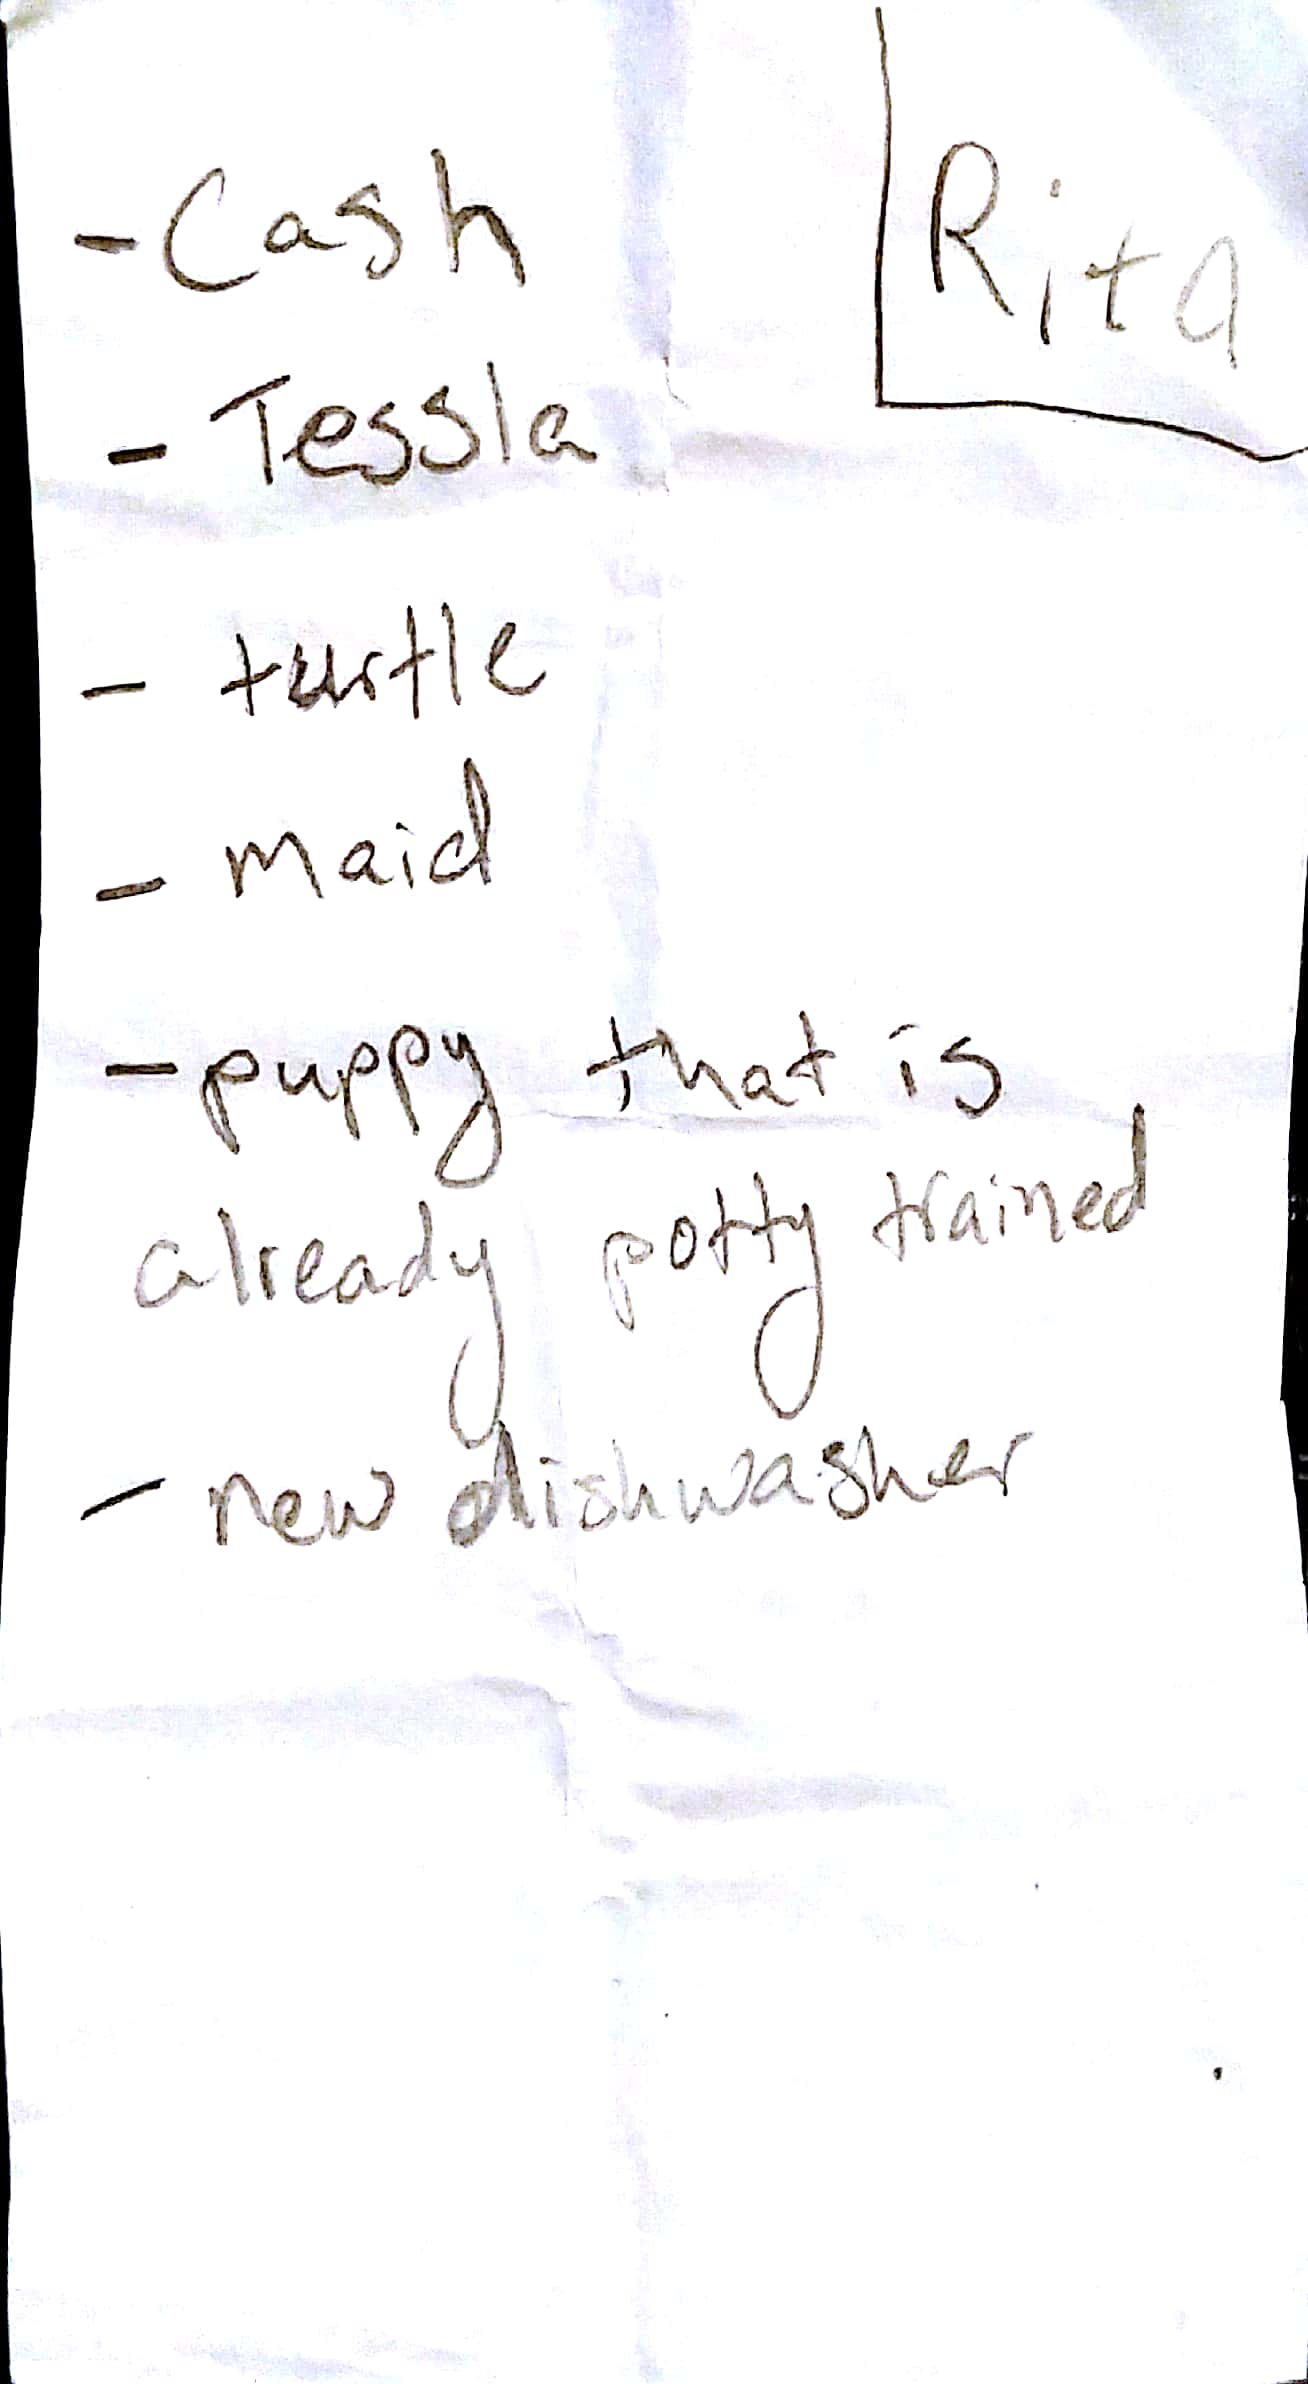 - Cash
Rita
- Tessla
- turtle
- maid
- puppy that is
already potty trained
- new dishwasher